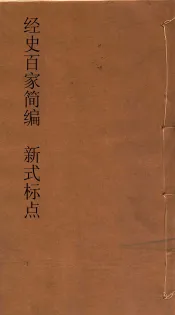 经史百家简编 新式标点